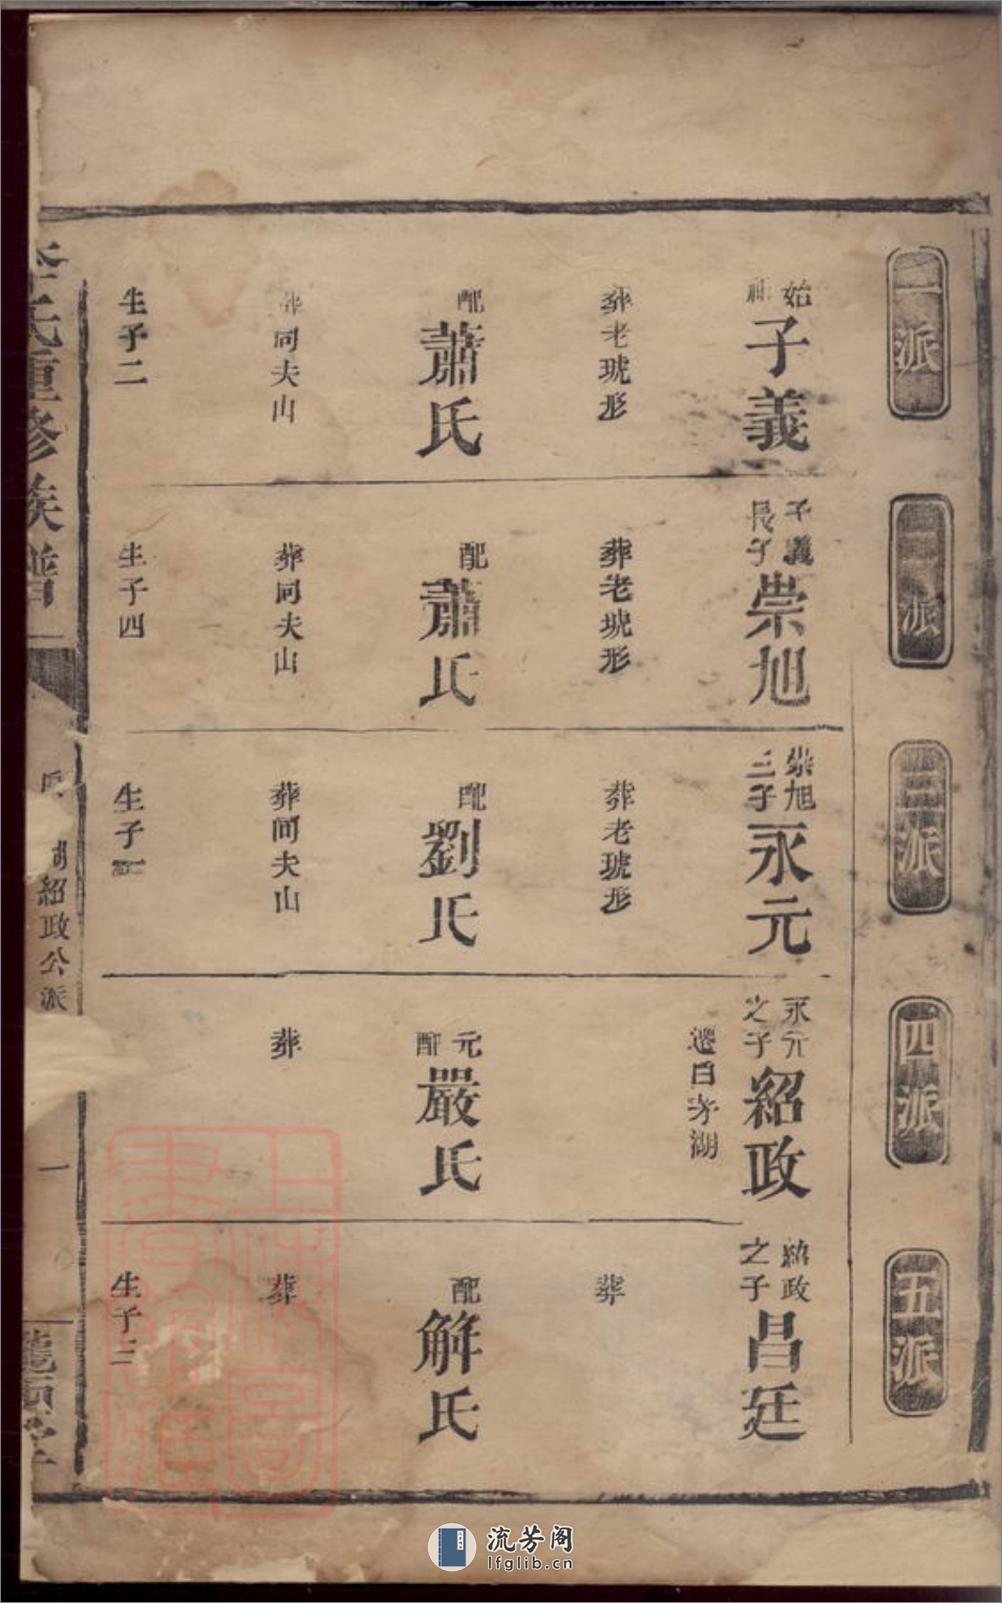 一派
始祖子義
葬老琥形
配蕭氏
葬同夫山
生子二
二派
子義長子崇旭
葬老琥形
配蕭氏
葬同夫山
生子四
三派
崇旭三子永元
葬老琥形
配劉氏
葬同夫山
生子一
四派
永元之子紹政
遷白茅湖
元配嚴氏
葬
五派
紹政之子昌廷
葬
配解氏
葬
生子三
氏重修族譜
湖紹政公派
一
堂
流芳阁
lfglib.cn